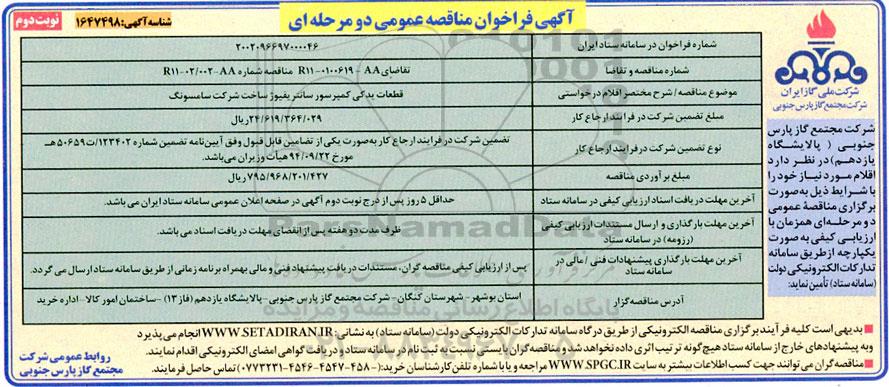 آگهی فراخوان مناقصه عمومی دو مرحله ای
شناسه آگهی: ۱۶۴۷۴۹۸
نوبت دوم
شرکت ملی گاز ایران
شرکت مجتمع گاز پارس جنوبی
شرکت مجتمع گاز پارس
جنوبی ( پالایشگاه
یازدهم) در نظر دارد
اقلام مورد نیاز خود را
با شرایط ذیل به‌صورت
برگزاری مناقصۀ عمومی
دو مرحله‌ای همزمان با
ارزیابی کیفی به‌صورت
یکپارچه از طریق سامانه
تدارکات الکترونیکی دولت
(سامانه ستاد) تأمین نماید:
شماره فراخوان در سامانه ستاد ایران
۲۰۰۲۰۹۶۶۹۷۰۰۰۰۴۶
شماره مناقصه و تقاضا
تقاضای R11-0100619 - AA مناقصه شماره R11-02/002-AA
موضوع مناقصه / شرح مختصر اقلام درخواستی
قطعات یدکی کمپرسور سانتریفیوژ ساخت شرکت سامسونگ
مبلغ تضمین شرکت در فرایند ارجاع کار
۲۴/۶۱۹/۳۶۴/۰۲۹ ریال
نوع تضمین شرکت در فرایند ارجاع کار
تضمین شرکت در فرایند ارجاع کار به‌صورت یکی از تضامین قابل قبول وفق آیین‌نامه تضمین شماره ۱۲۳۴۰۲/ت۵۰۶۵۹هـ
مورخ ۹۴/۰۹/۲۲ هیأت وزیران می‌باشد.
مبلغ برآوردی مناقصه
۷۹۵/۹۶۸/۲۰۱/۴۲۷ ریال
آخرین مهلت دریافت اسناد ارزیابی کیفی در سامانه ستاد
حداقل ۵ روز پس از درج نوبت دوم آگهی در صفحه اعلان عمومی سامانه ستاد ایران می باشد.
آخرین مهلت بارگذاری و ارسال مستندات ارزیابی کیفی
(رزومه) در سامانه ستاد
ظرف مدت دو هفته پس از انقضای مهلت دریافت اسناد می باشد.
آخرین مهلت بارگذاری پیشنهادات فنی / مالی در
سامانه ستاد
پس از ارزیابی کیفی مناقصه گران، مستندات دریافت پیشنهاد فنی و مالی بهمراه برنامه زمانی از طریق سامانه ستاد ارسال می گردد.
آدرس مناقصه‌گزار
استان بوشهر - شهرستان کنگان - شرکت مجتمع گاز پارس جنوبی - پالایشگاه یازدهم (فاز ۱۳) - ساختمان امور کالا - اداره خرید
■ بدیهی است کلیه فرآیند برگزاری مناقصه الکترونیکی از طریق درگاه سامانه تدارکات الکترونیکی دولت (سامانه ستاد) به نشانی: WWW.SETADIRAN.IR انجام می‌پذیرد
و به پیشنهادهای خارج از سامانه ستاد هیچ‌گونه ترتیب اثری داده نخواهد شد و مناقصه‌گران بایستی نسبت به ثبت نام در سامانه ستاد و دریافت گواهی امضای الکترونیکی اقدام نمایند.
■ مناقصه گران می توانند جهت کسب اطلاعات بیشتر به سایت WWW.SPGC.IR مراجعه و یا با شماره تلفن کارشناسان خرید: (۴۵۸۰-۴۵۴۷-۴۵۴۶-۰۷۷۳۲۳۱) تماس حاصل فرمایند.
روابط عمومی شرکت
مجتمع گاز پارس جنوبی
ParsNamadData
پایگاه اطلاع رسانی مناقصه و مزایده